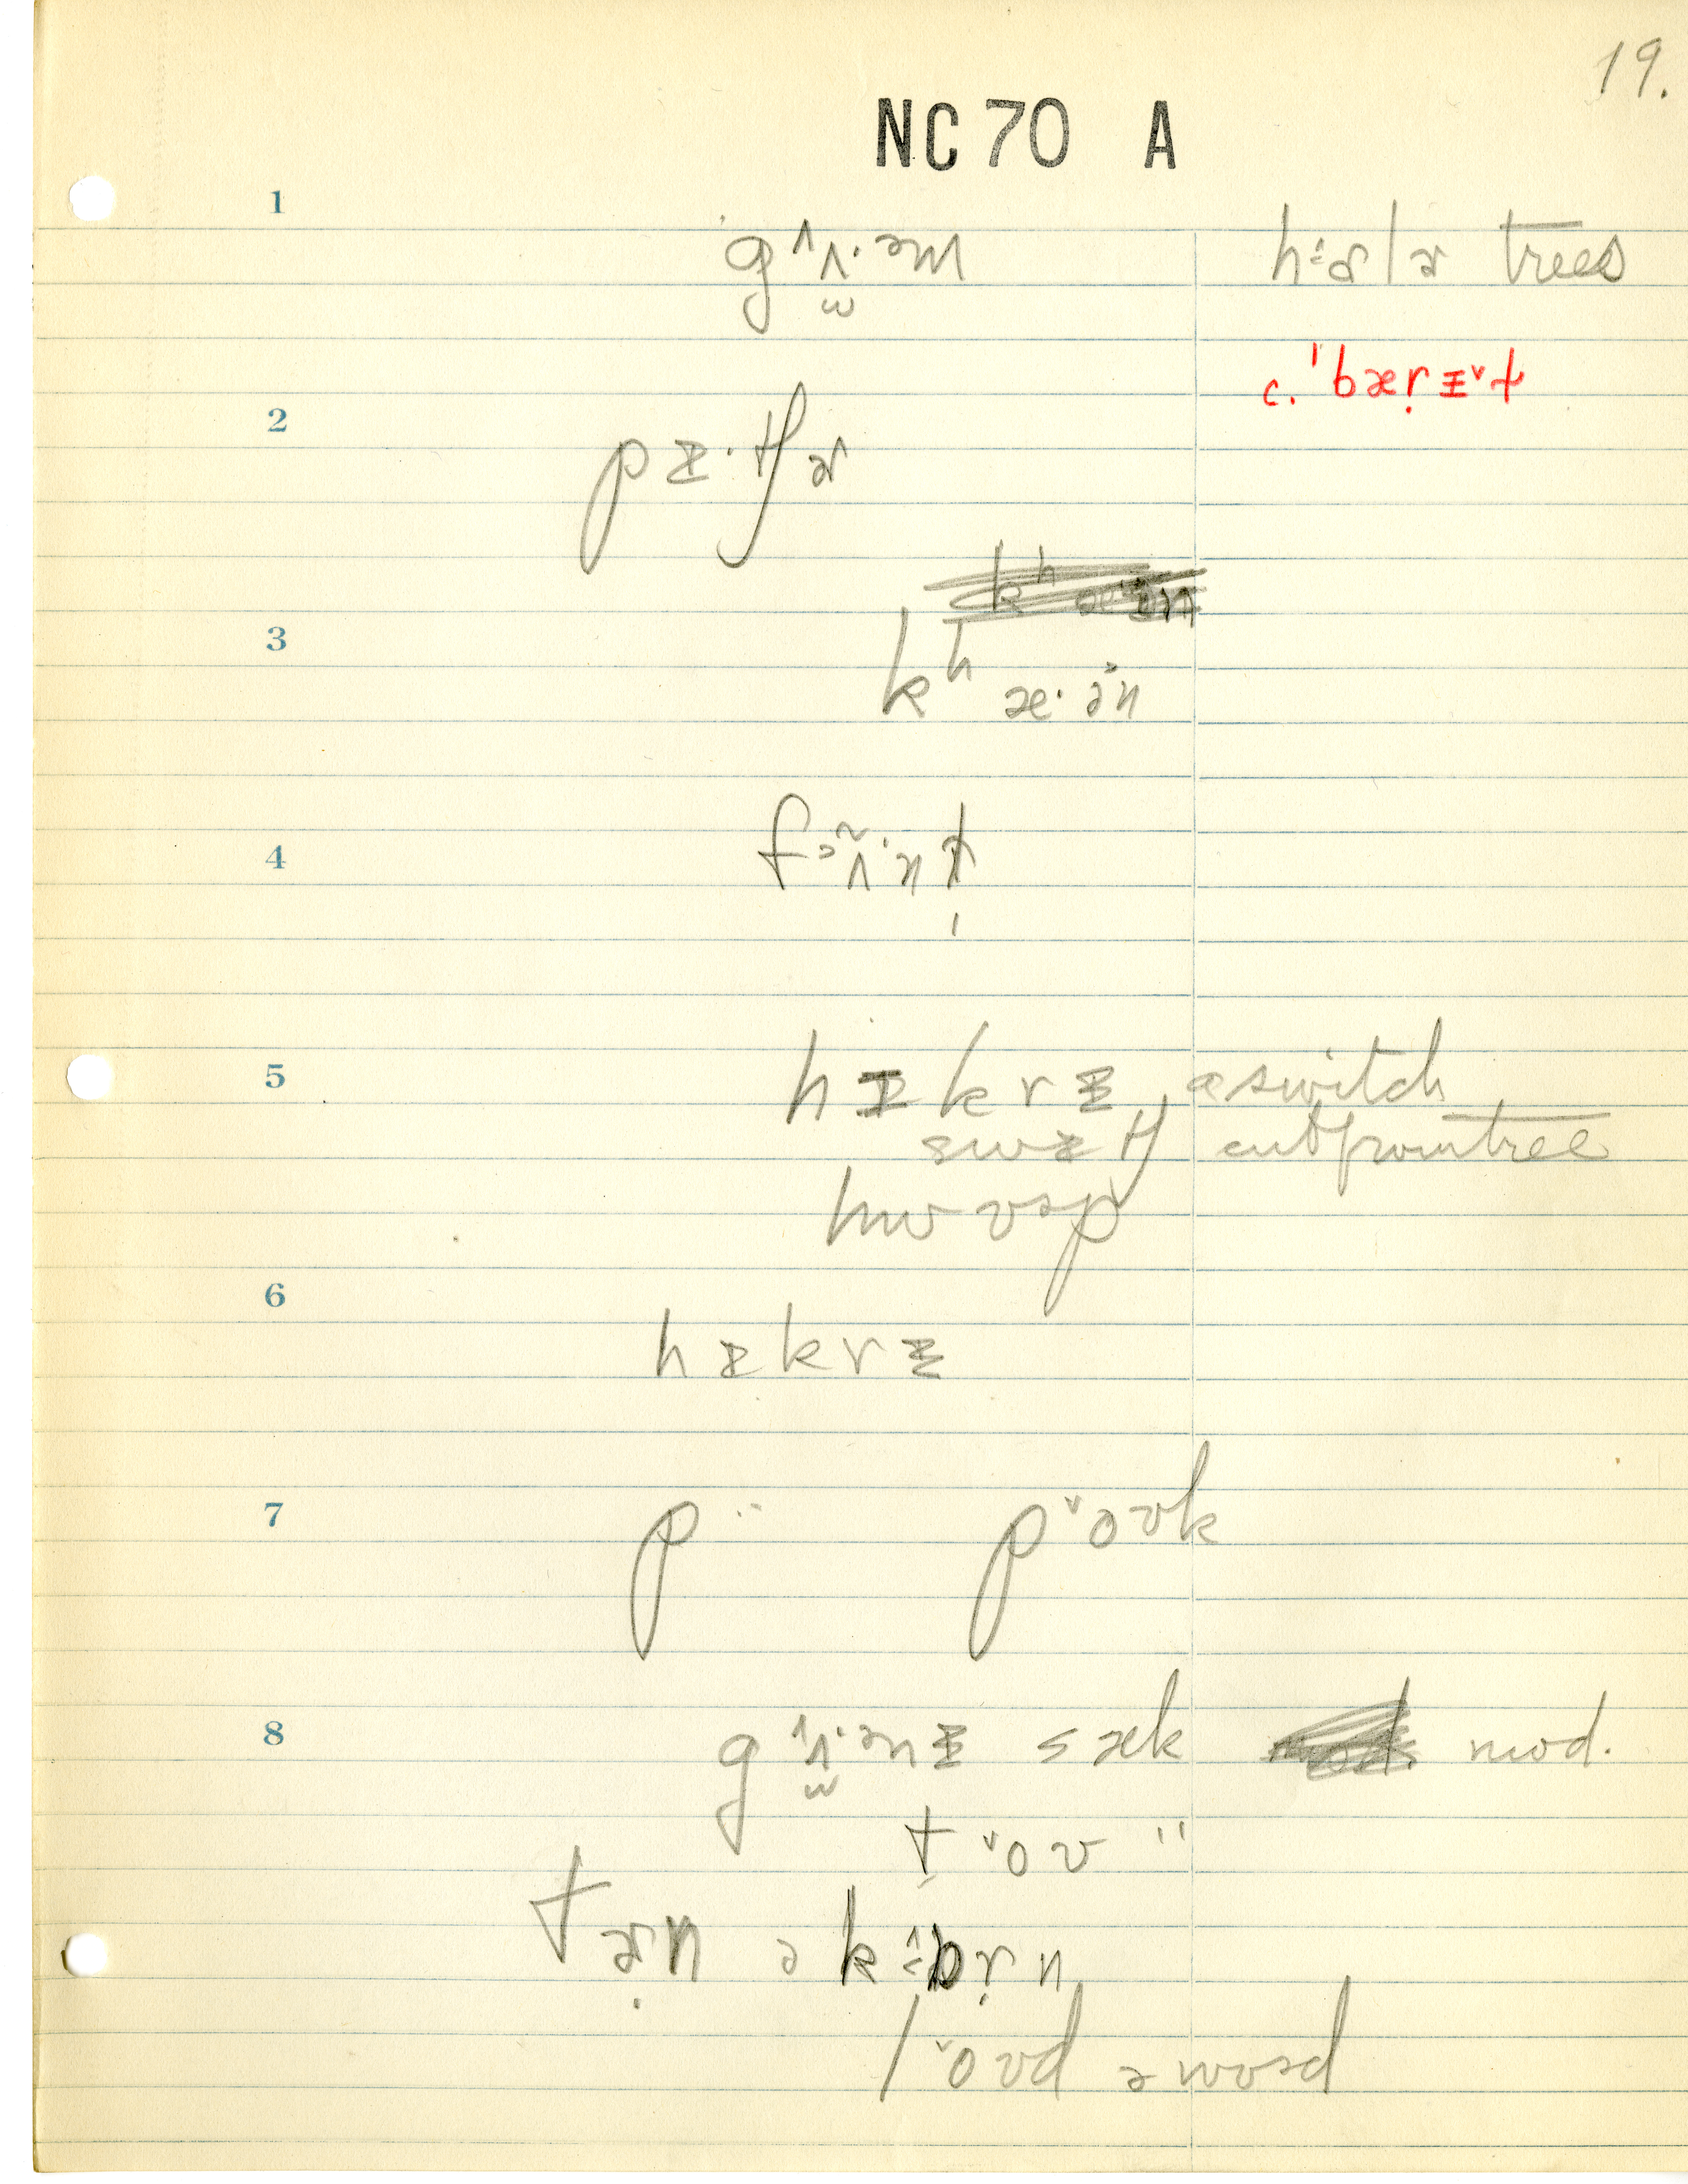 19.
NC 70 A
1
gʌ̭ʌ·əm hɒlɚ trees
c. ˈbærɪ˅t
2
pɪ·tʃɚ
3
kʰ æ·ən
4
fəʌ̃·nt̬
5
hɪkrɪ a switch
swɪtʃ cut from tree
hwʊəp
6
hɪkrɪ
7
p ·· p˅oʊk
8
gʌ̭ʌ·ənɪ sæk mod.
t˅oʊ "
tɚn ə kɒrn
l˅oʊd ə wʊəd